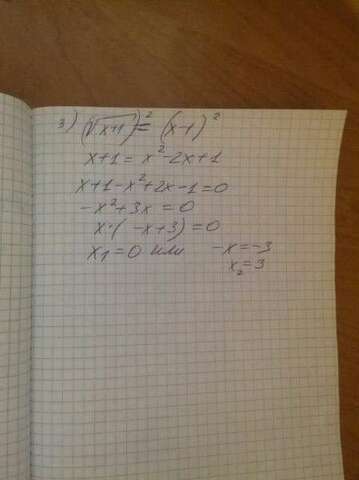 3) (√x+1)² = (x-1)²
x+1 = x²-2x+1
x+1-x²+2x-1=0
-x²+3x=0
x·(-x+3)=0
x₁=0 или -x=-3
x₂=3